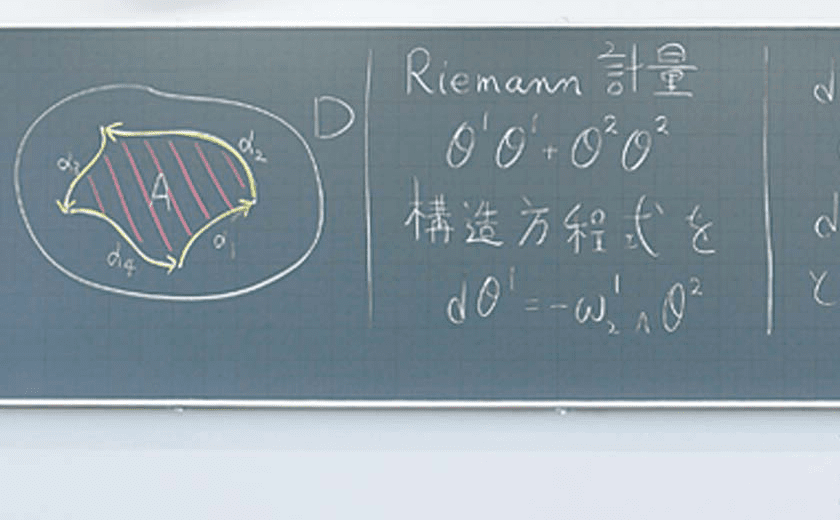 D
α₂
α₃
A
α₁
α₄
Riemann 計量
θ¹θ¹+θ²θ²
構造方程式を
dθ¹=-ω₂¹∧θ²
d
d
と